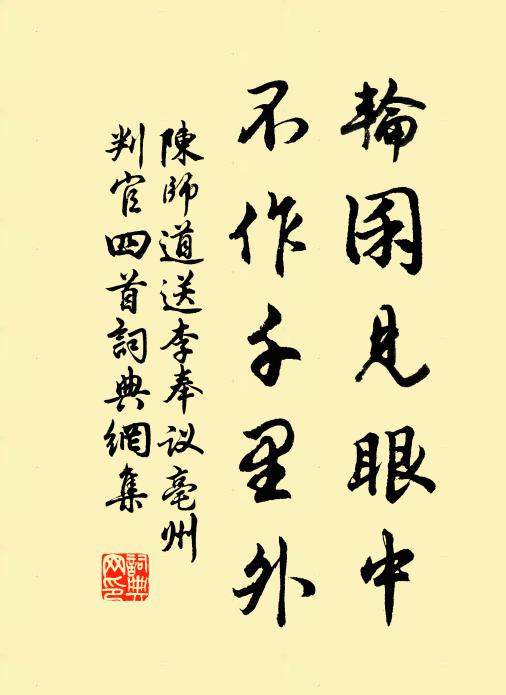 輪囷見眼中
不作千里外
陳師道送李奉议亳州
判官四首詞典網集
詞典网印